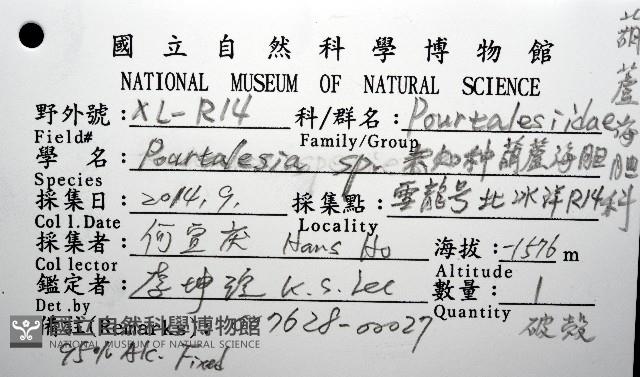 國立自然科學博物館
NATIONAL MUSEUM OF NATURAL SCIENCE
野外號：XL-R14 科/群名：Pourtalesiidae 葫蘆海胆科
Field# Family/Group
學 名：Pourtalesia sp. 未知种葫蘆海胆
Species
採集日：2014.9. 採集點：雪龍号北冰洋R14
Coll.Date Locality
採集者：何宣庆 Hans Ho 海拔：-1576 m
Collector Altitude
鑑定者：李坤瑄 K.S. Lee 數量：1
Det.by Quantity
備註(Remarks): 7628-00027 破殼
95% Alc. Fixed
國立自然科學博物館
NATIONAL MUSEUM OF NATURAL SCIENCE